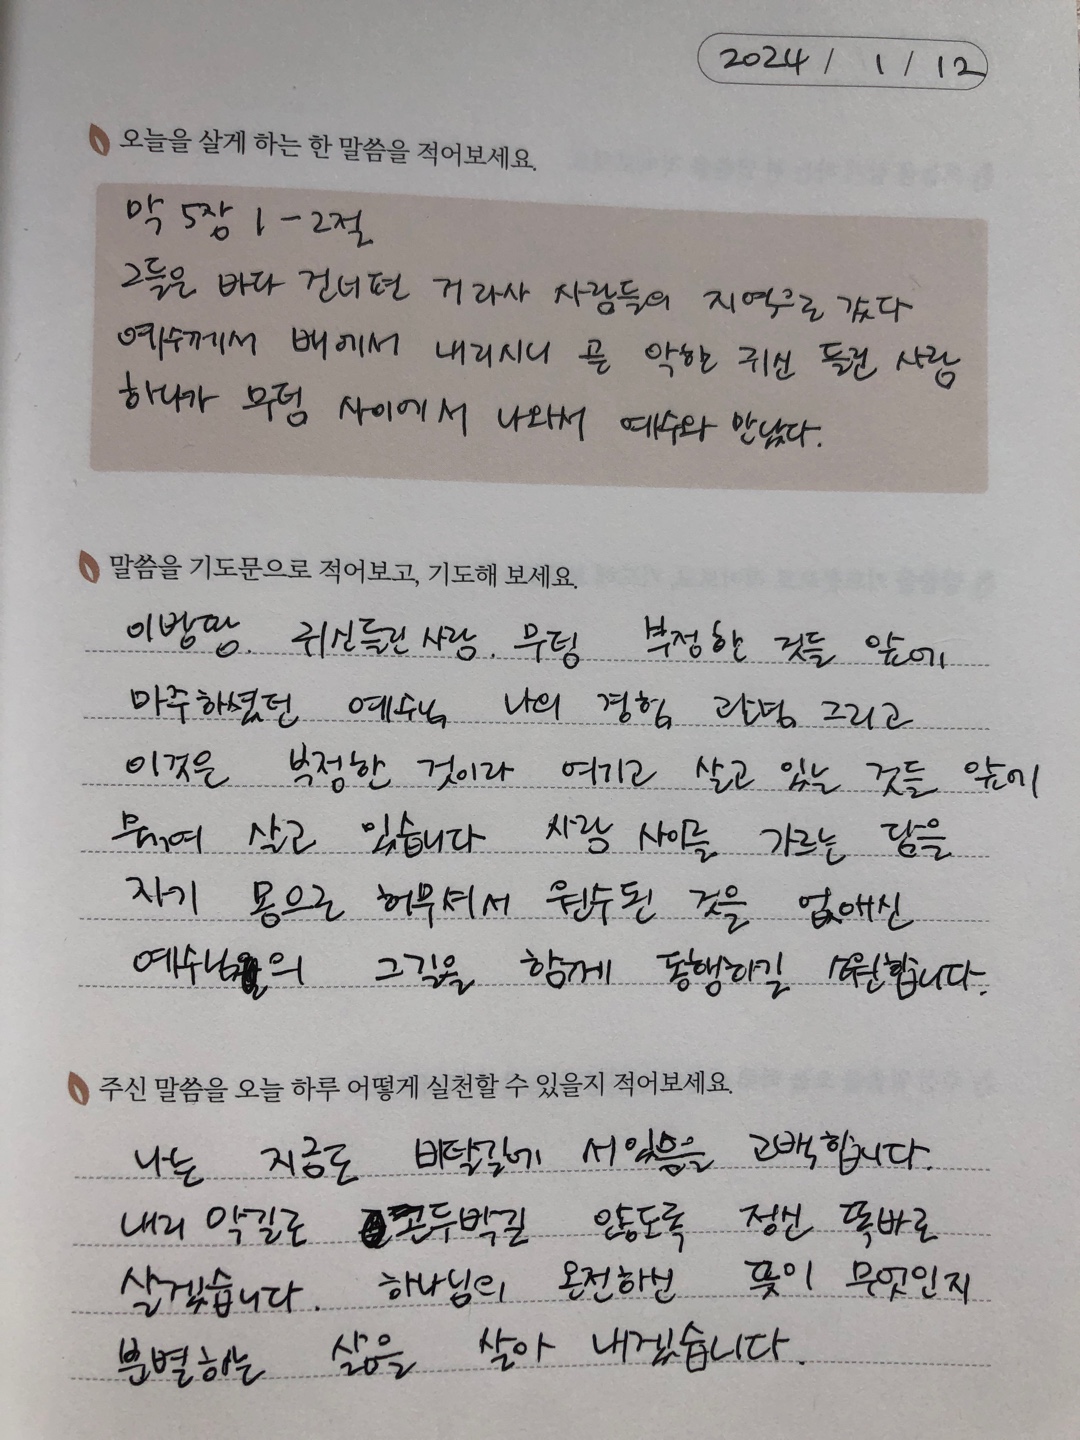 2024 / 1 / 12
오늘을 살게 하는 한 말씀을 적어보세요.
막 5장 1-2절
그들은 바다 건너편 거라사 사람들의 지역으로 갔다
예수께서 배에서 내리시니 곧 악한 귀신 들린 사람
하나가 무덤 사이에서 나와서 예수와 만났다.
말씀을 기도문으로 적어보고, 기도해 보세요.
이방땅. 귀신들린 사람. 무덤 부정한 것들 앞에
마주하셨던 예수님 나의 경험, 관념, 그리고
이것은 부정한 것이라 여기고 살고 있는 것들 앞에
묶여 살고 있습니다 사람 사이를 가르는 담을
자기 몸으로 허무셔서 원수된 것을 없애신
예수님의 그길을 함께 동행하길 소원합니다.
주신 말씀을 오늘 하루 어떻게 실천할 수 있을지 적어보세요.
나는 지금도 비탈길에 서있음을 고백합니다.
내리 막길로 곤두박질 않도록 정신 똑바로
살겠습니다. 하나님의 온전하신 뜻이 무엇인지
분별하는 삶을 살아 내겠습니다.